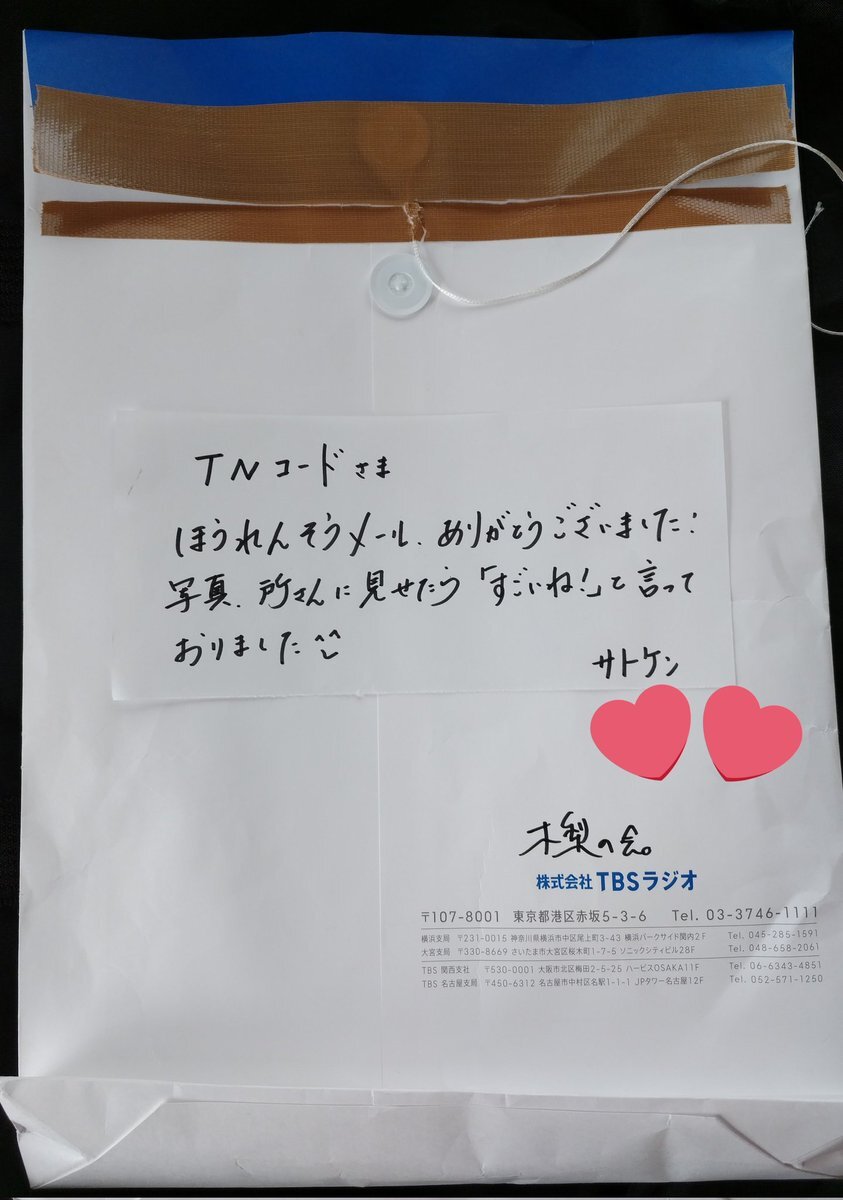 TNコードさま
ほうれんそうメール、ありがとうございました!
写真、所さんに見せたら「すごいね!」と言って
おりました^^
サトケン
木梨の会。
株式会社TBSラジオ
〒107-8001 東京都港区赤坂5-3-6 Tel. 03-3746-1111
横浜支局 〒231-0015 神奈川県横浜市中区尾上町3-43 横浜パークサイド関内2F Tel. 045-285-1591
大宮支局 〒330-8669 さいたま市大宮区桜木町1-7-5 ソニックシティビル28F Tel. 048-658-2061
TBS 関西支社 〒530-0001 大阪市北区梅田2-5-25 ハービスOSAKA11F Tel. 06-6343-4851
TBS 名古屋支局 〒450-6312 名古屋市中村区名駅1-1-1 JPタワー名古屋12F Tel. 052-571-1250